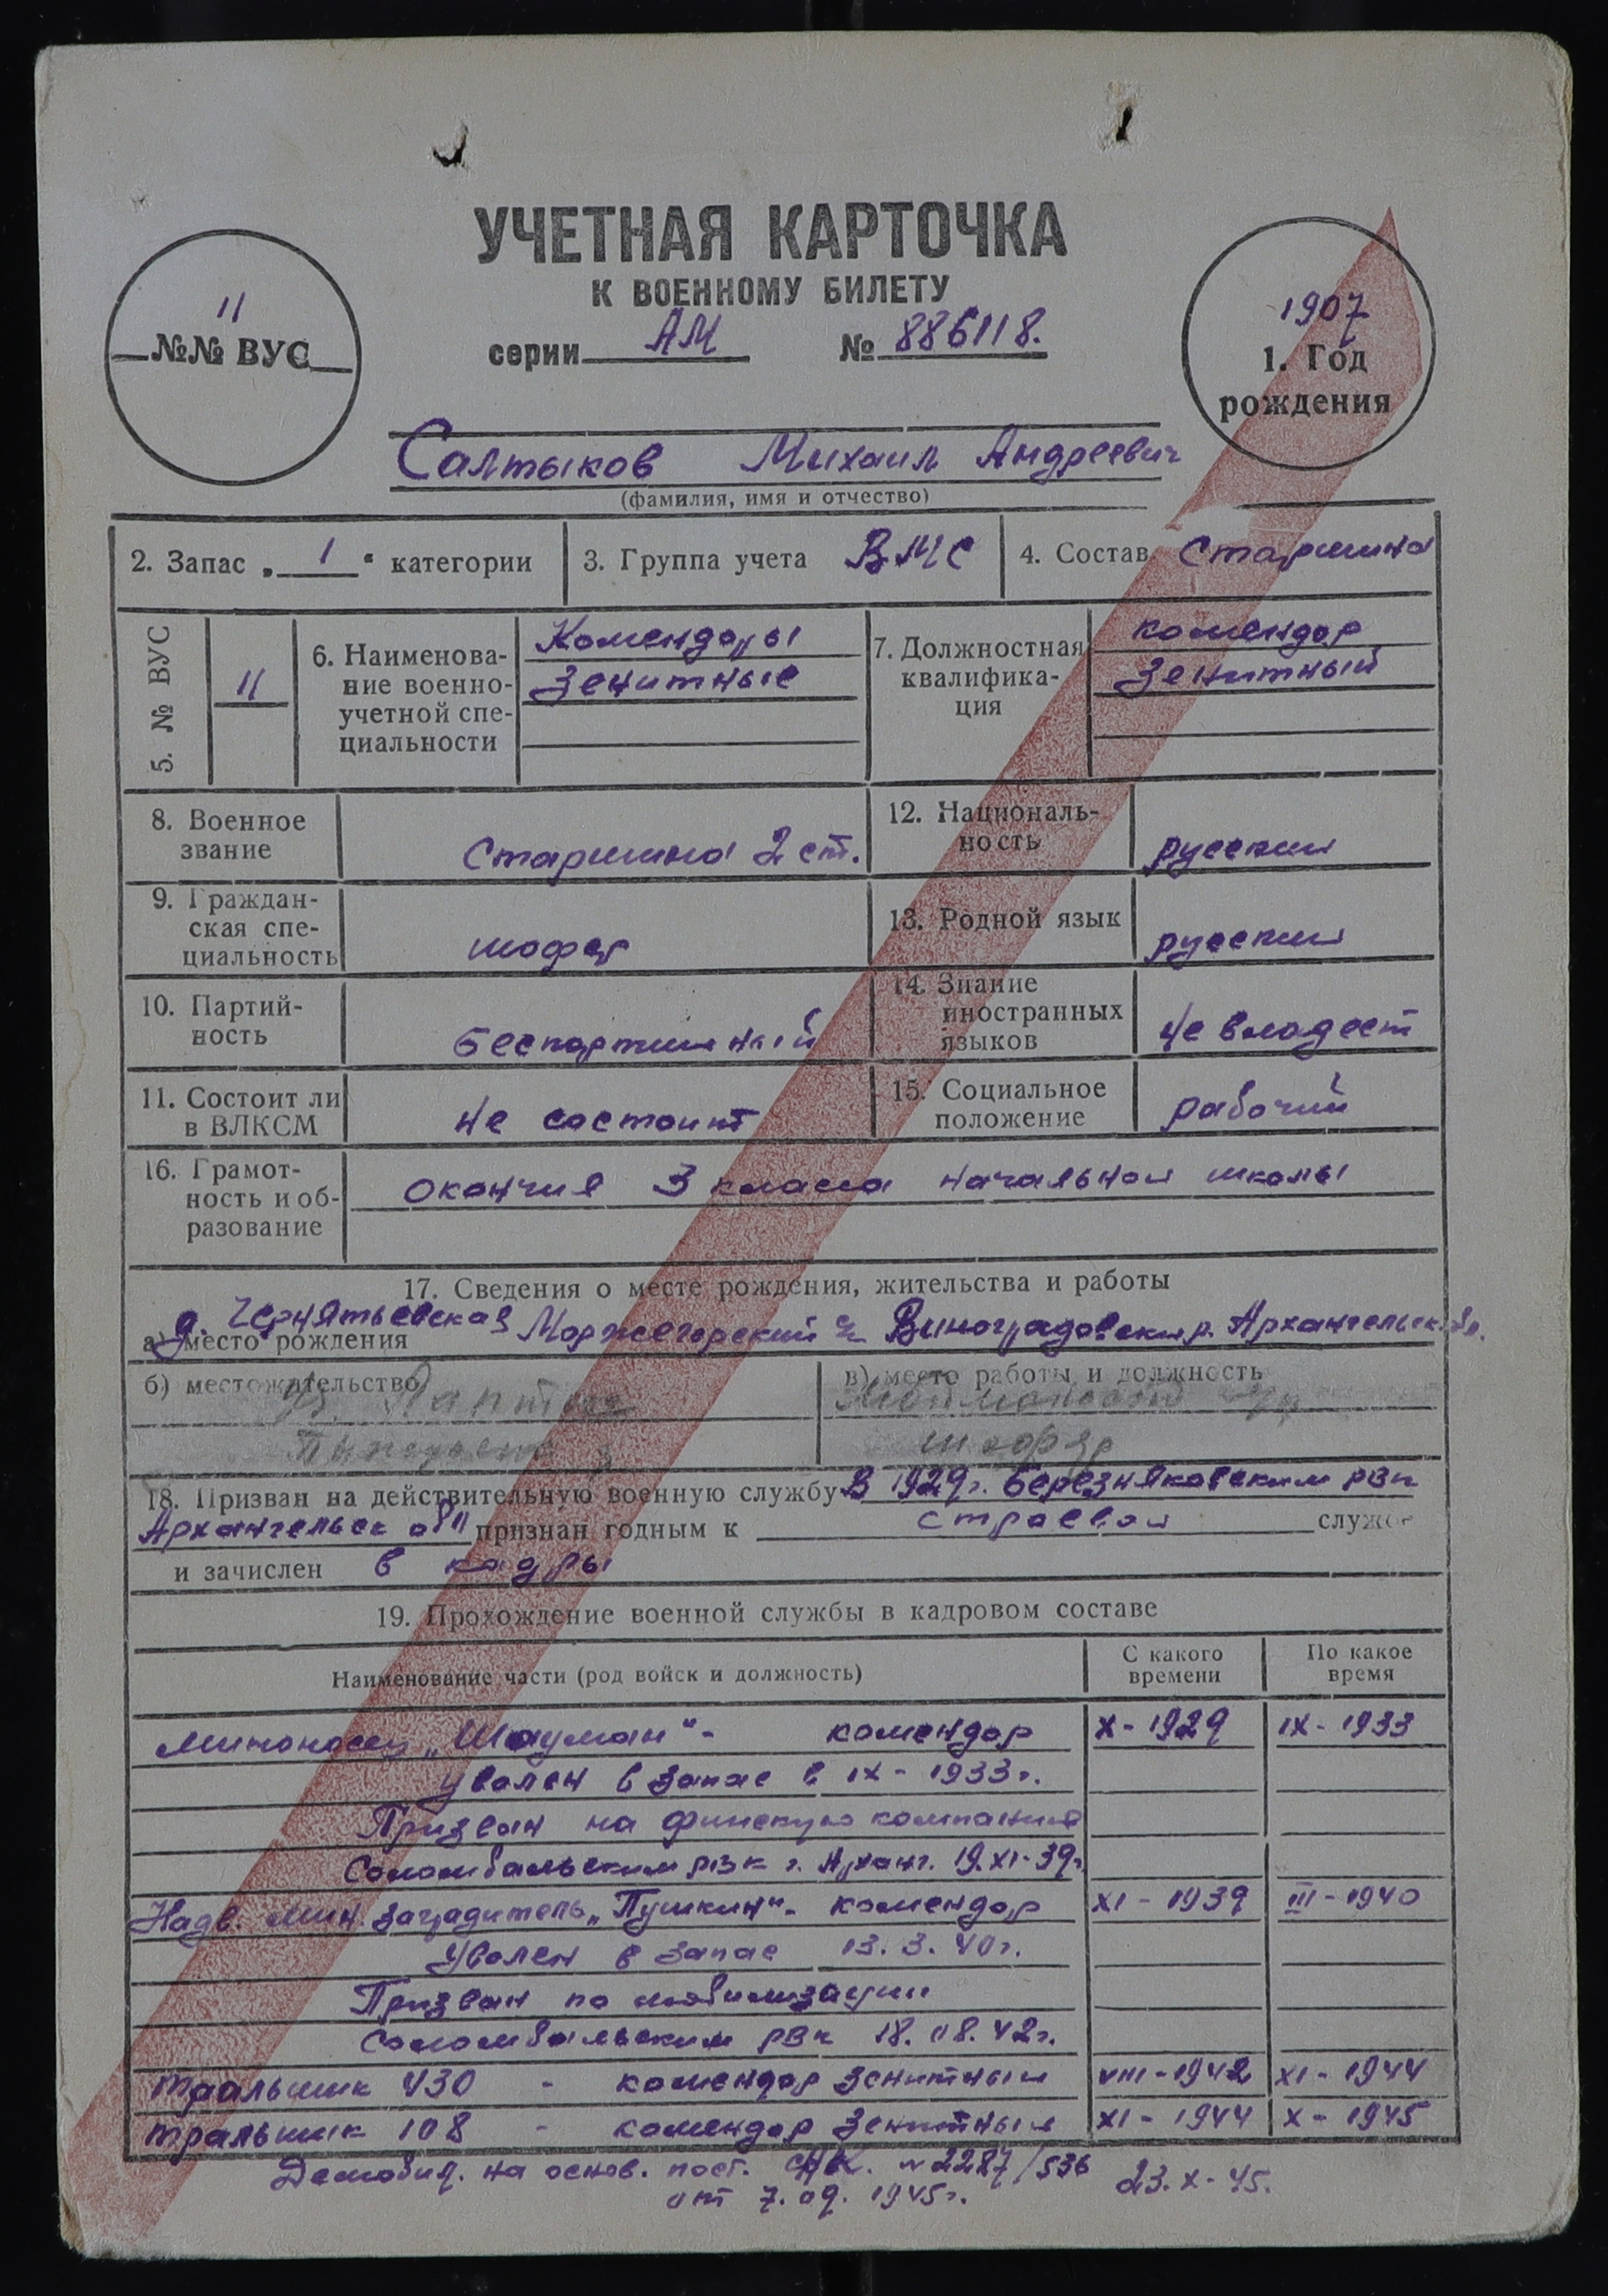 УЧЕТНАЯ КАРТОЧКА
К ВОЕННОМУ БИЛЕТУ
серии АМ № 886118.
11
№№ ВУС
1907
1. Год
рождения
Салтыков Михаил Андреевич
(фамилия, имя и отчество)
2. Запас „ 1 “ категории
3. Группа учета ВМС
4. Состав Старшина
5. № ВУС
11
6. Наименова-
ние военно-
учетной спе-
циальности
Комендоры
Зенитные
7. Должностная
квалифика-
ция
комендор
Зенитный
8. Военное
звание
Старшина 2 ст.
12. Националь-
ность
русский
9. Граждан-
ская спе-
циальность
шофер
13. Родной язык
русский
10. Партий-
ность
Беспартийный
14. Знание
иностранных
языков
не владеет
11. Состоит ли
в ВЛКСМ
не состоит
15. Социальное
положение
рабочий
16. Грамот-
ность и об-
разование
окончил 3 класса начальной школы
17. Сведения о месте рождения, жительства и работы
а) место рождения
д. Чернятьевская Моржегорский с/с Виноградовский р. Архангельск. обл.
б) местожительство
в) место работы и должность
шофер
18. Призван на действительную военную службу В 1929г. Березняковским РВК
Архангельск обл признан годным к строевой службе
и зачислен в кадры
19. Прохождение военной службы в кадровом составе
Наименование части (род войск и должность)
С какого
времени
По какое
время
Миноносец „Шауман“ - комендор X - 1929 IX - 1933
уволен в запас в IX - 1933г.
Призван на финскую компанию
Соломбальским РВК г. Арханг. 19.XI-39г.
Надв. мин. заградитель „Пушкин“ - комендор XI - 1939 III - 1940
Уволен в запас 13.3.40г.
Призван по мобилизации
Соломбальским РВК 18.08.42г.
тральщик 430 - комендор зенитный VIII - 1942 XI - 1944
тральщик 108 - комендор Зенитный XI - 1944 X - 1945
Демобил. на основ. пост. СНК. № 2287/536 23.X-45.
от 7.09.1945г.